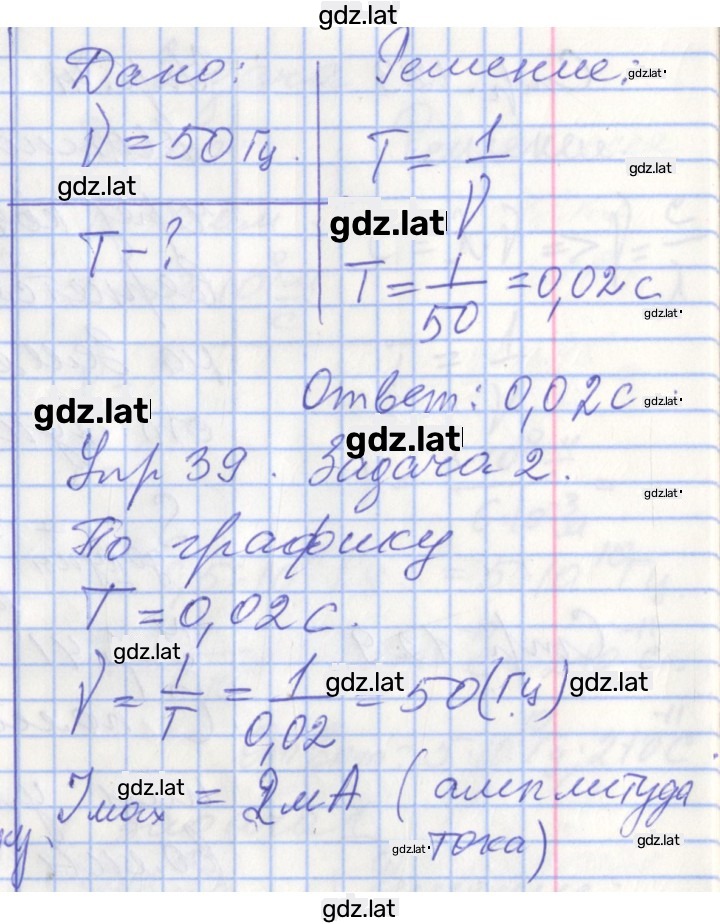 gdz.lat
Дано:
Решение: gdz.lat
ν = 50 Гц.
gdz.lat
T = 1/ν
gdz.lat
gdz.lat
T - ?
T = 1/50 = 0,02 с
gdz.lat
Ответ: 0,02 с gdz.lat
gdz.lat
gdz.lat
Упр 39. Задача 2.
gdz.lat
По графику
T = 0,02 с.
gdz.lat
ν = 1/T = 1/0,02 = 50 (Гц)
gdz.lat gdz.lat
gdz.lat
Imax = 2 мА (амплитуда
тока)
gdz.lat gdz.lat
gdz.lat